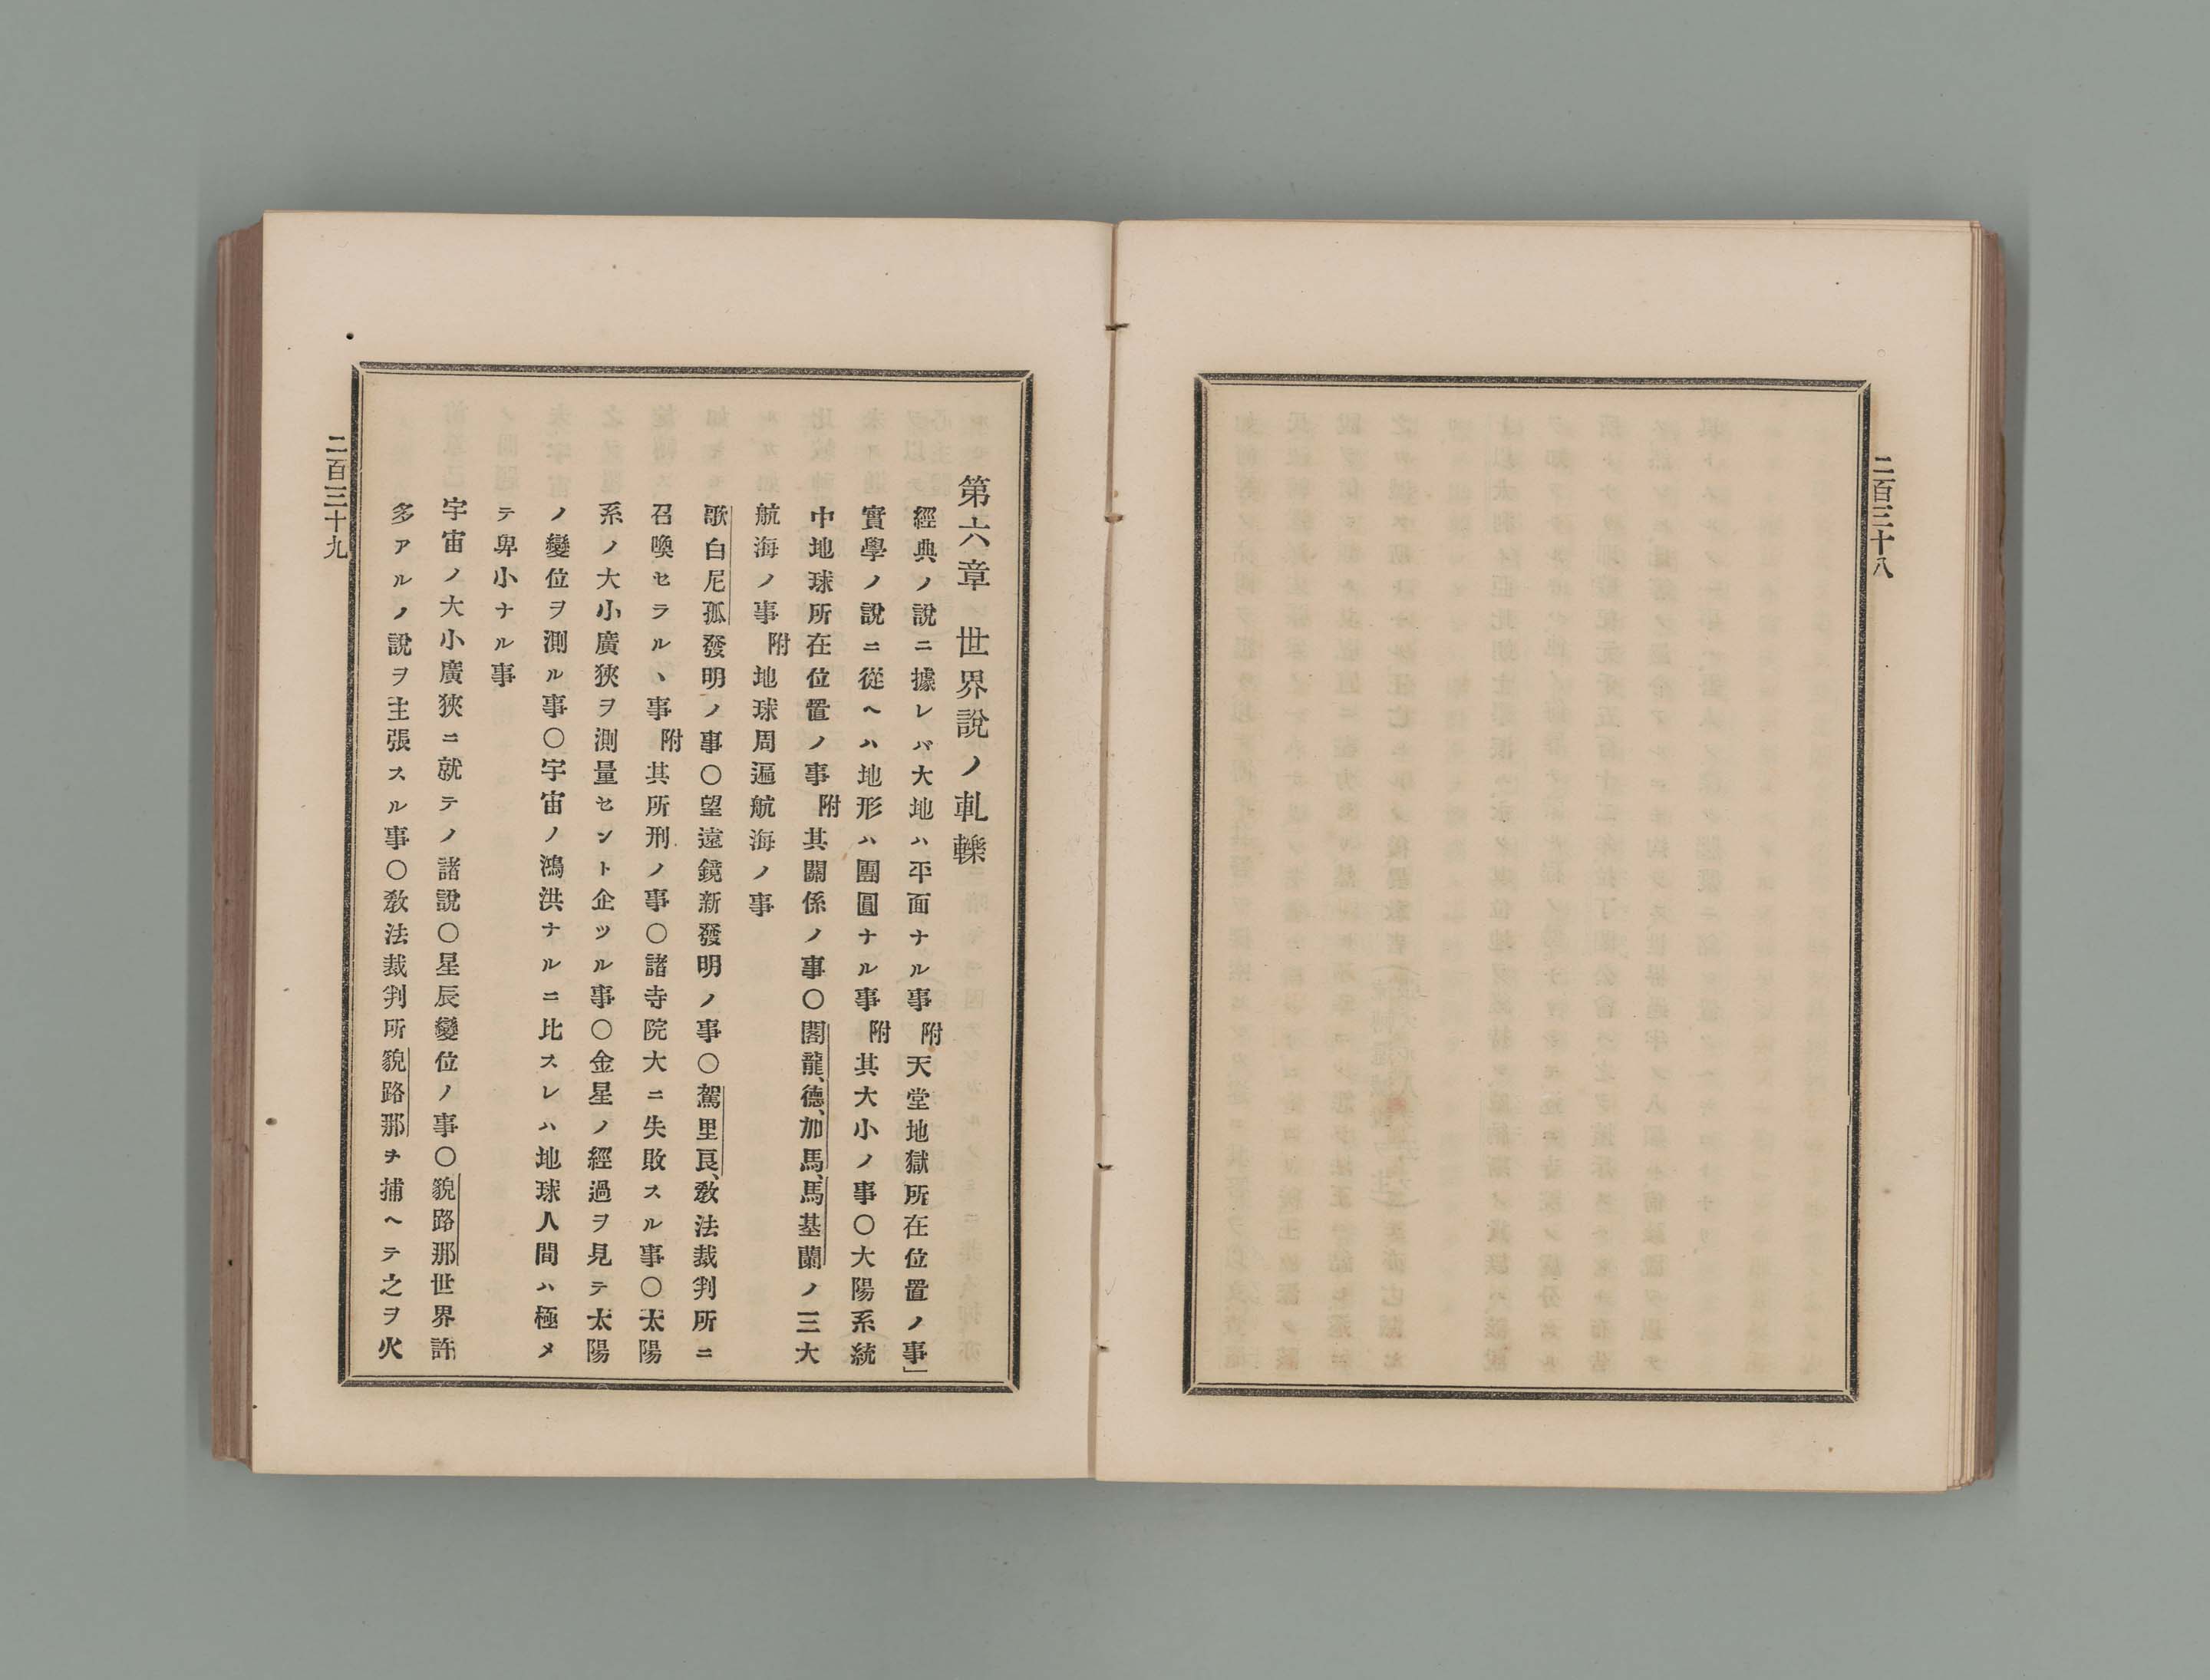 二百三十八
第六章　世界説ノ軋轢
經典ノ說ニ據レバ大地ハ平面ナル事附天堂地獄所在位置ノ事」
實學ノ說ニ從ヘハ地形ハ團圓ナル事附其大小ノ事〇大陽系統
中地球所在位置ノ事附其關係ノ事〇閣龍、德、加馬、馬基蘭ノ三大
航海ノ事附地球周遍航海ノ事
歌白尼孤發明ノ事〇望遠鏡新發明ノ事〇駕里良、敎法裁判所ニ
召喚セラルヽ事附其所刑ノ事〇諸寺院大ニ失敗スル事〇太陽
系ノ大小廣狹ヲ測量セント企ツル事〇金星ノ經過ヲ見テ太陽
ノ變位ヲ測ル事〇宇宙ノ鴻洪ナルニ比スレハ地球人間ハ極メ
テ卑小ナル事
宇宙ノ大小廣狹ニ就テノ諸說〇星辰變位ノ事〇貌路那世界許
多アルノ說ヲ主張スル事〇敎法裁判所貌路那ヲ捕ヘテ之ヲ火
二百三十九